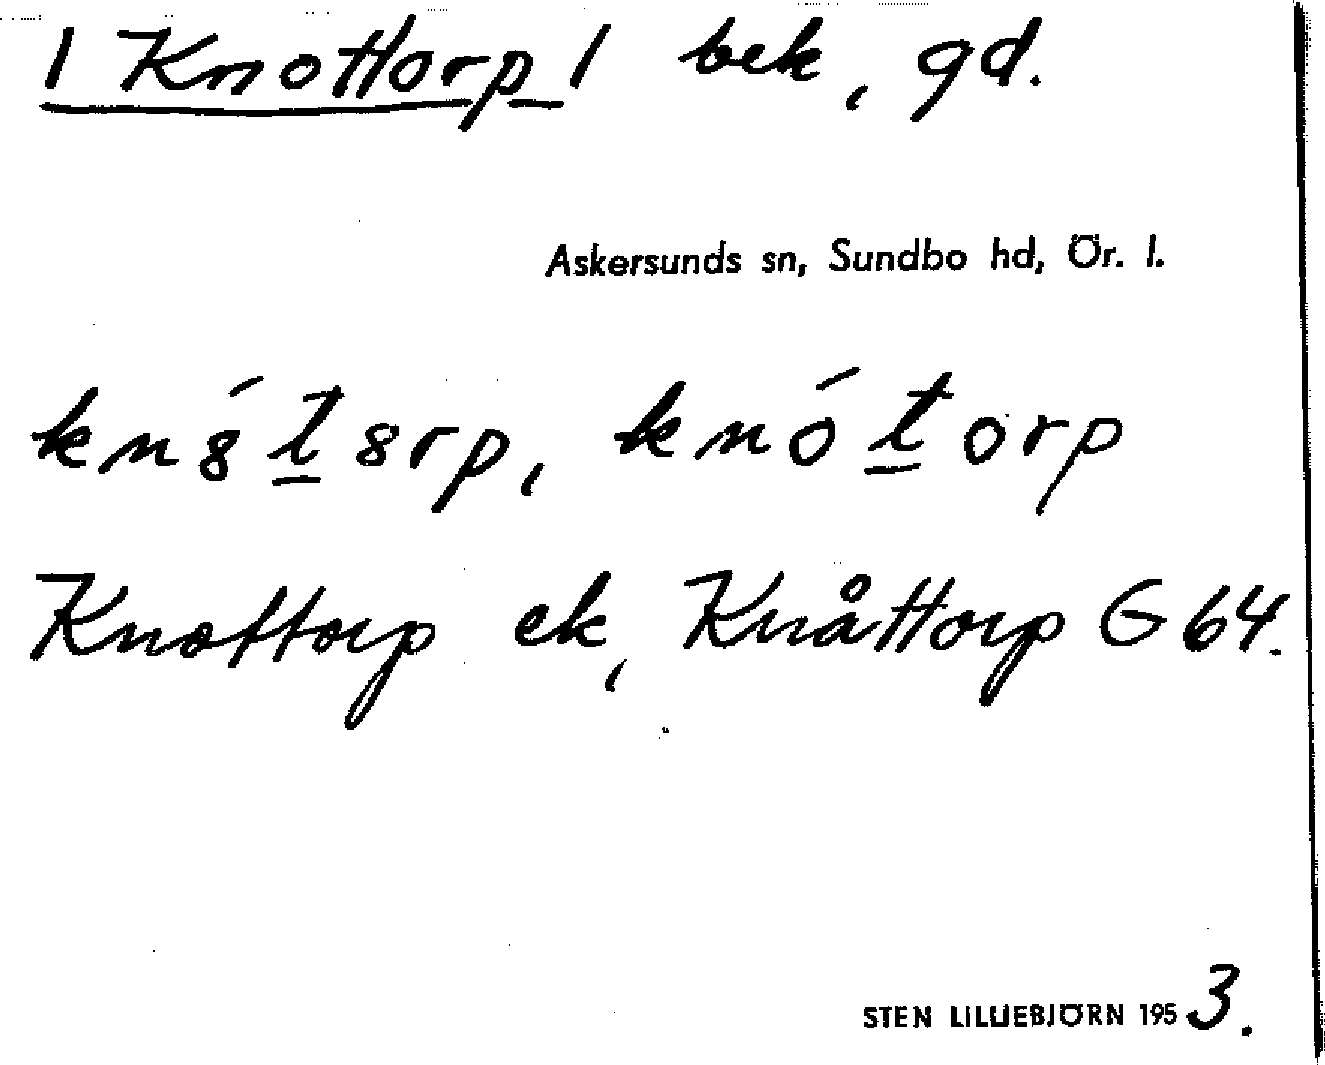 / Knottorp / bek, gd.
Askersunds sn, Sundbo hd, Ör. l.
kn8́t̲8rp, knót̲orp
Knottorp ek, Knåttorp G 64.
STEN LILLIEBJÖRN 1953.